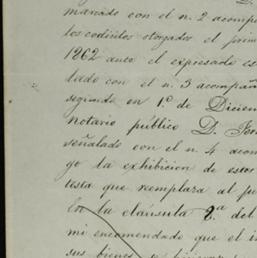 marcado con el n. 2 acomp
los codicilos otorgados el prim
1862 ante el expresado es
lado con el n. 3 acompañ
segundo en 1.º de Diciem
notario público D. Jo
señalado con el n. 4 acom
go la exhibicion de estos
testa que remplaza al
En la cláusula 8.ª del
mi encomendado que el
sus bienes